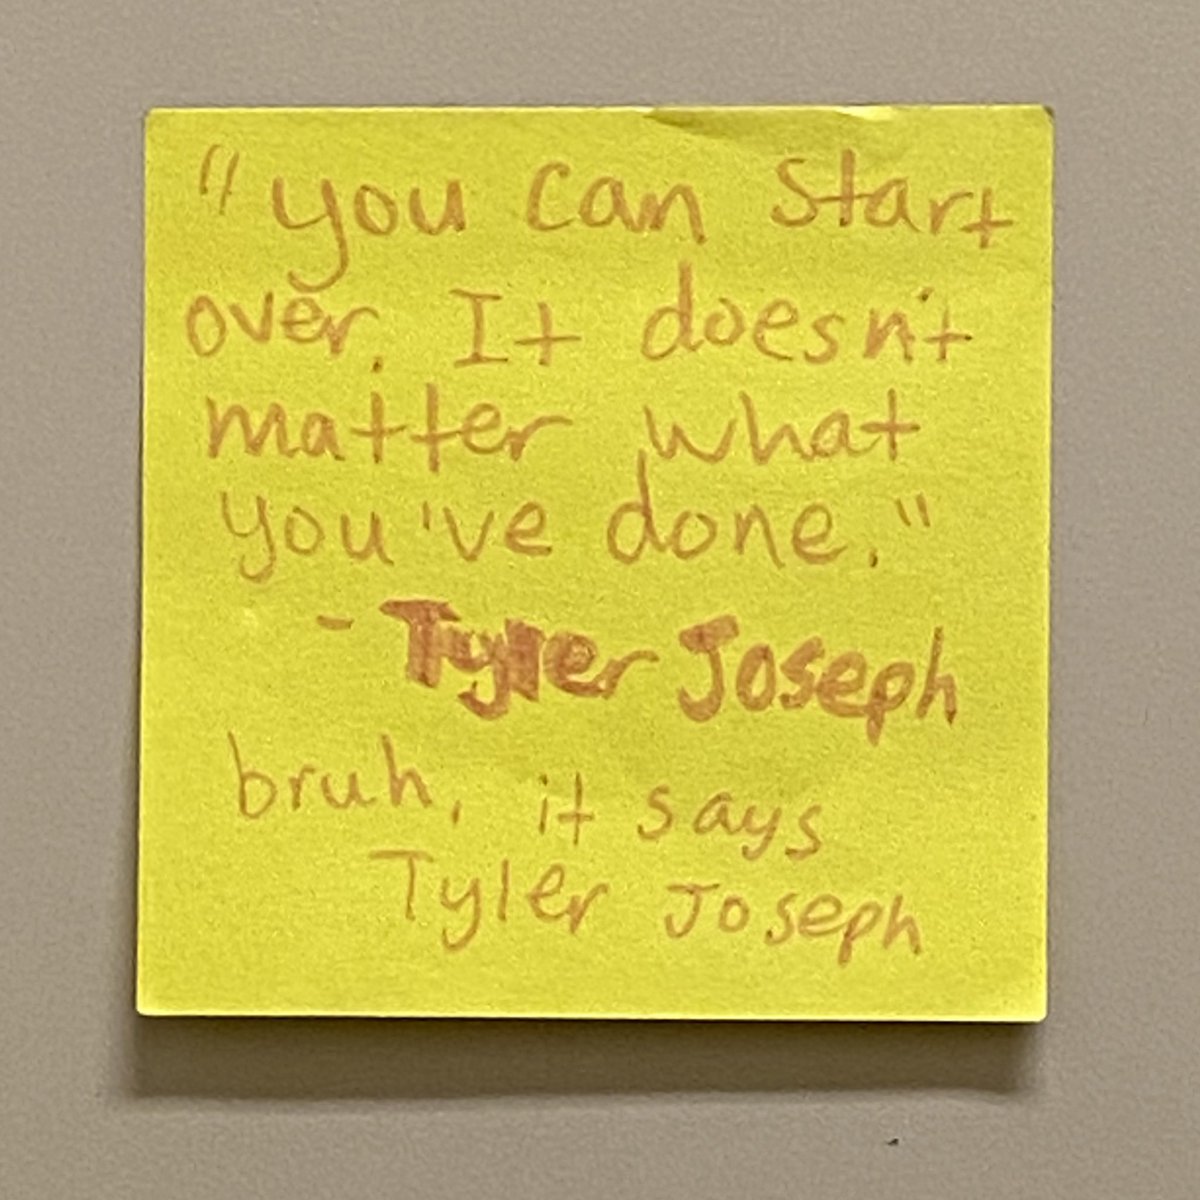 "you can start
over. It doesn't
matter what
you've done."
- Tyler Joseph
bruh, it says
Tyler Joseph